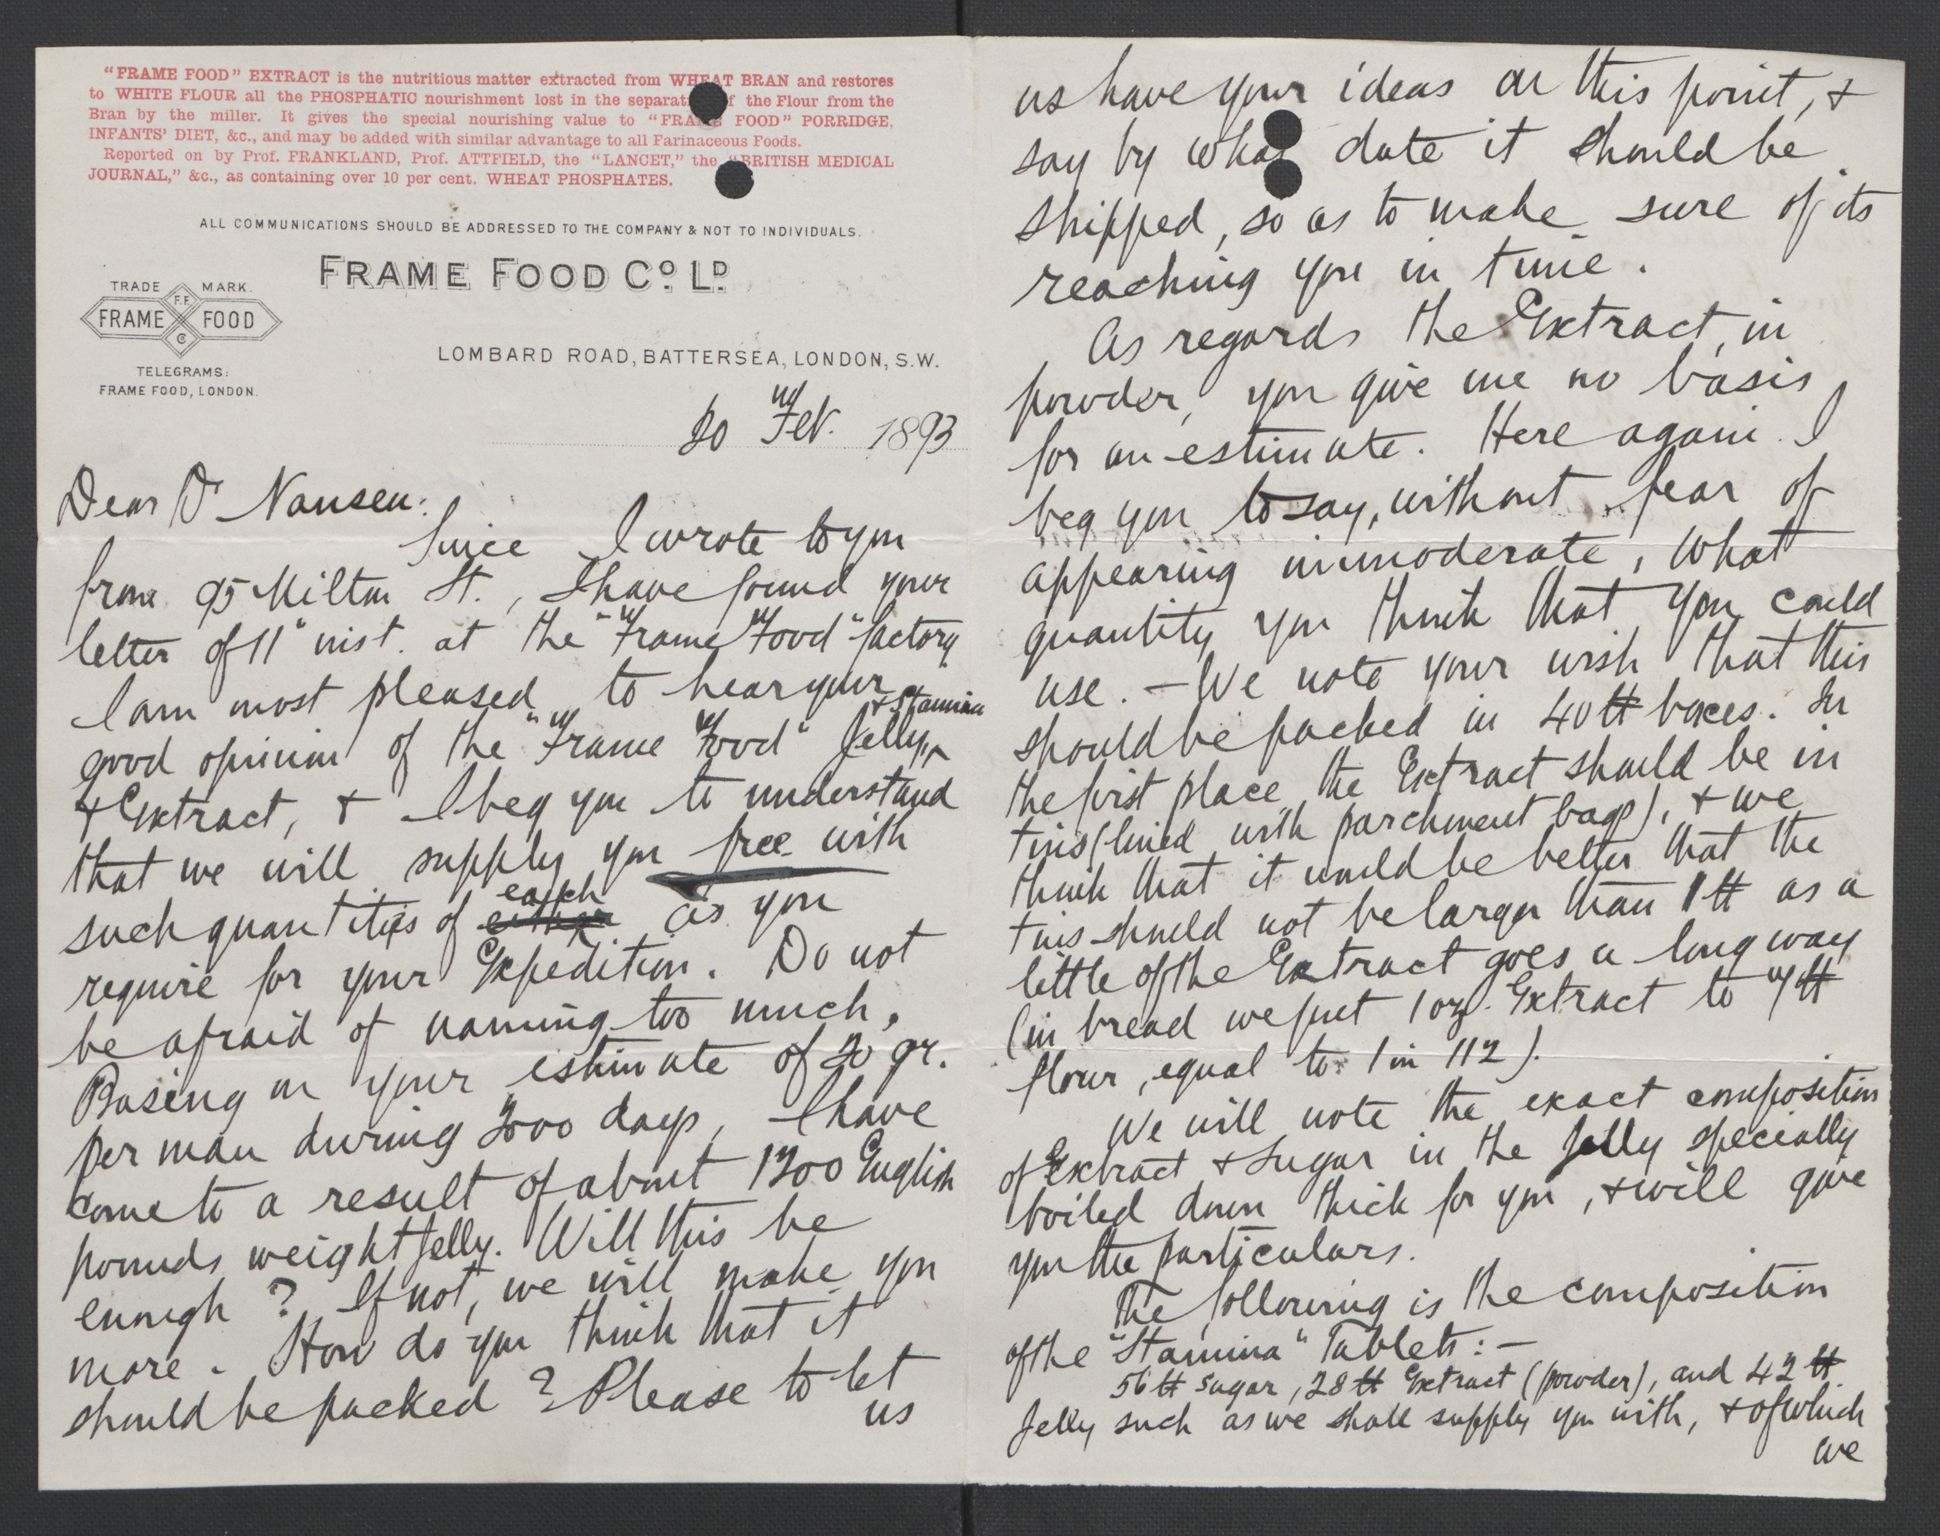 "FRAME FOOD" EXTRACT is the nutritious matter extracted from WHEAT BRAN and restores
to WHITE FLOUR all the PHOSPHATIC nourishment lost in the separat of the Flour from the
Bran by the miller. It gives the special nourishing value to "FRAME FOOD" PORRIDGE,
INFANTS' DIET, &c., and may be added with similar advantage to all Farinaceous Foods.
Reported on by Prof. FRANKLAND, Prof. ATTFIELD, the "LANCET," the "BRITISH MEDICAL
JOURNAL," &c., as containing over 10 per cent. WHEAT PHOSPHATES.
ALL COMMUNICATIONS SHOULD BE ADDRESSED TO THE COMPANY & NOT TO INDIVIDUALS.
FRAME FOOD Co. LD.
TRADE MARK.
F.F.
FRAME FOOD
Co
TELEGRAMS:
FRAME FOOD, LONDON.
LOMBARD ROAD, BATTERSEA, LONDON, S.W.
20 Feb. 1893
Dear Dr Nansen:
Since I wrote to you
from 95 Milton St., I have found your
letter of 11" inst. at the "Frame Food" factory
I am most pleased to hear your
good opinion of the "Frame Food" Jelly, & Stamina
& Extract, & I beg you to understand
that we will supply you free with
such quantities of each as you
require for your Expedition. Do not
be afraid of naming too much.
Basing on your estimate of 20 gr.
per man during 2000 days, I have
come to a result of about 1200 English
pounds weight Jelly. Will this be
enough? If not, we will make you
more. How do you think that it
should be packed? Please to let
us
us have your ideas on this point, &
say by what date it should be
shipped, so as to make sure of its
reaching you in time.
As regards the Extract, in
powder, you give me no basis
for an estimate. Here again I
beg you to say, without fear of
appearing immoderate, what
quantity you think that you could
use. — We note your wish that this
should be packed in 40 lb boxes. In
the first place the Extract should be in
tins (lined with parchment bags), & we
think that it would be better that the
tins should not be larger than 1 lb as a
little of the Extract goes a long way
(in bread we put 1 oz. Extract to 7 lb
flour, equal to 1 in 112).
We will note the exact composition
of Extract & Sugar in the Jelly specially
boiled down thick for you, & will give
you the particulars.
The following is the composition
of the "Stamina" Tablets: —
56 lb sugar, 28 lb Extract (powder), and 42 lb
Jelly such as we shall supply you with, & of which
we